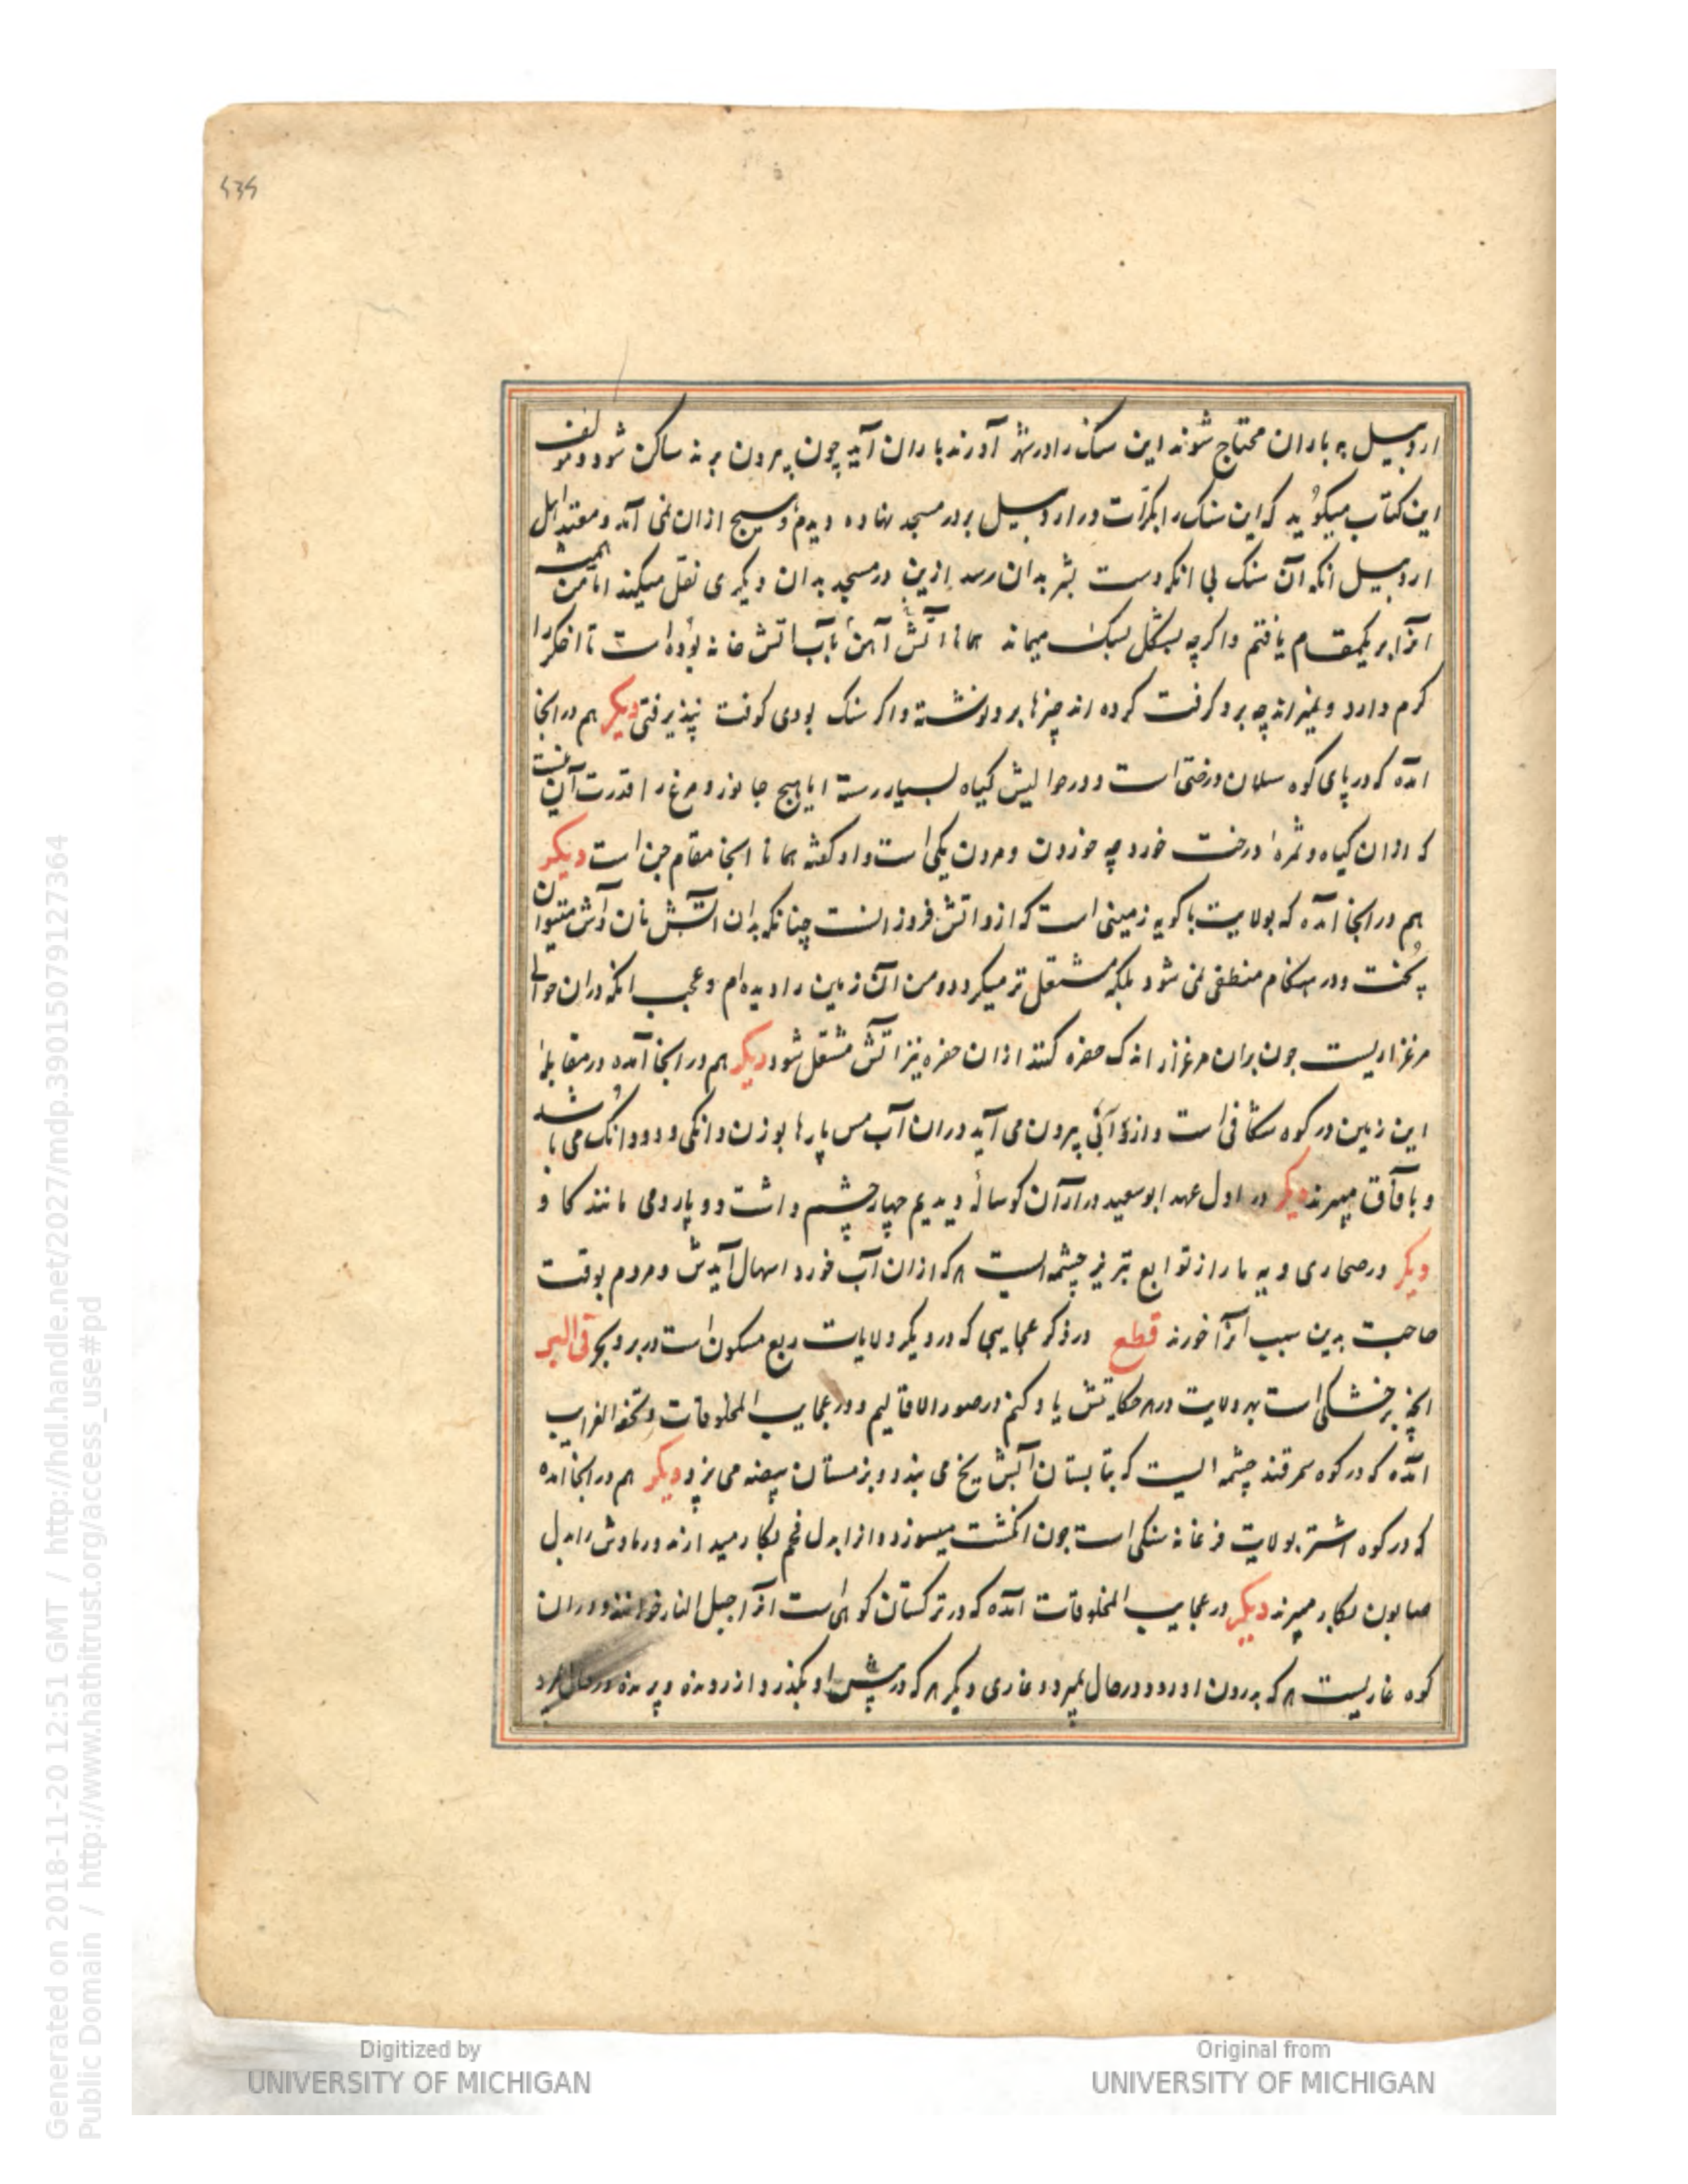 اردبیل به باران محتاج شوند این سنک را در شهر آورند باران آید چون بیرون برند ساکن شود و مولف
این کتاب میکوید که این سنک را بکرات در اردبیل بر در مسجد نهاده دیدم و هیچ ازان نمی آمد و معتقد اهل
اردبیل انکه آن سنک بی انکه دست بشر بدان رسد ازین در مسجد بدان دیکری نقل میکند اما من همیشه
انرا بر یکمقام یافتم و اکرچه بشکل سنک میماند همانا آتش آهن باب اتش خانه بوده است تا اخکر را
کرم دارد و غیرانه چه برو کرفت کرده اند چیزها برو نوشته و اکر سنک بودی کوفت نپذیرفتی دیکر هم در انجا
امده که در پای کوه سبلان درختی است و در حوالیش کیاه بسیار رسته اما هیچ جانور و مرغ را قدرت آن نیست
که ازان کیاه و ثمره درخت خورد چه خوردن و مردن یکی است و او کفته همانا انجا مقام جن است دیکر
هم در انجا امده که بولایت باکویه زمینی است که ازو اتش فروزانست چنانکه بدان اتش نان و آش میتوان
پخت و در هنکام منطفی نمی شود بلکه مشتعل تر میکردد و من آن زمین را دیده ام و عجب انکه دران حوالی
مرغزاریست چون بران مرغزار اندک حفره کنند ازان حفره نیز اتش مشتعل شود دیکر هم در انجا آمده در مقابله
این زمین در کوه شکافی است و ازو آبی بیرون می آید دران آب مس پارها بوزن دانکی و دو دانک می باشد
و بافاق میبرند دیکر در اول عهد ابوسعید در ارّان کوساله دیدیم چهار چشم داشت و دو پا رومی مانند کاو
دیکر در صحاری دیه مارا از توابع تبریز چشمه ایست هرکه ازان آب خورد اسهال آیدش و مردم بوقت
حاجت بدین سبب انرا خورند قطع در ذکر عجایبی که در دیکر ولایات ربع مسکون است در بر و بحر فی البر
انچه بر خشکی است بهر ولایت در هر حکایتش یاد کنم در صور الاقالیم و در عجایب المخلوقات و تحفه الغرایب
امده که در کوه سمرقند چشمه ایست که بتابستان آبش یخ می بندد و بزمستان بیضه می پزد دیکر هم در انجا امده
که در کوه اشتر بولایت فرغانه سنکی است چون انکشت میسوزد و انرا بدل فحم بکار میدارند و رمادش را بدل
صابون بکار میبرند دیکر در عجایب المخلوقات امده که در ترکستان کوهی است انرا جبل النار خوانند و دران
کوه غاریست هرکه بدرون او رود در حال بمیرد و غاری دیکر هرکه در پیش او بکذرد از رونده و پرنده در حال بمیرد
Generated on 2018-11-20 12:51 GMT / http://hdl.handle.net/2027/mdp.39015079127364
Public Domain / http://www.hathitrust.org/access_use#pd
Digitized by
UNIVERSITY OF MICHIGAN
Original from
UNIVERSITY OF MICHIGAN